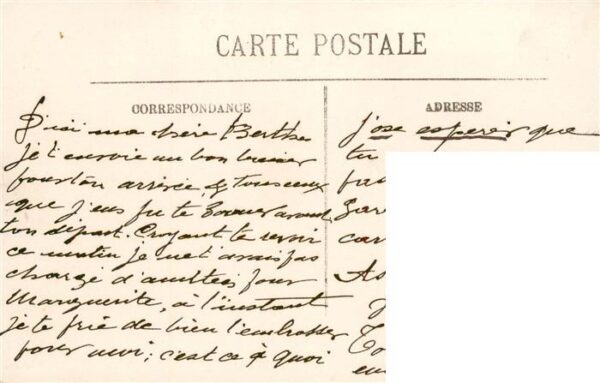 CARTE POSTALE
CORRESPONDANCE
ADRESSE
D'ici ma chère Berthe
je t'envoie un bon baiser
pour ton arrivée, &
que j'eus pu te donner avant
ton départ. Croyant te revoir
ce matin je ne t'avais pas
chargé d'amitiés pour
Marguerite, à l'instant
je te prie de bien l'embrasser
pour moi; c'est ce à quoi
j'ose esperer que
tu